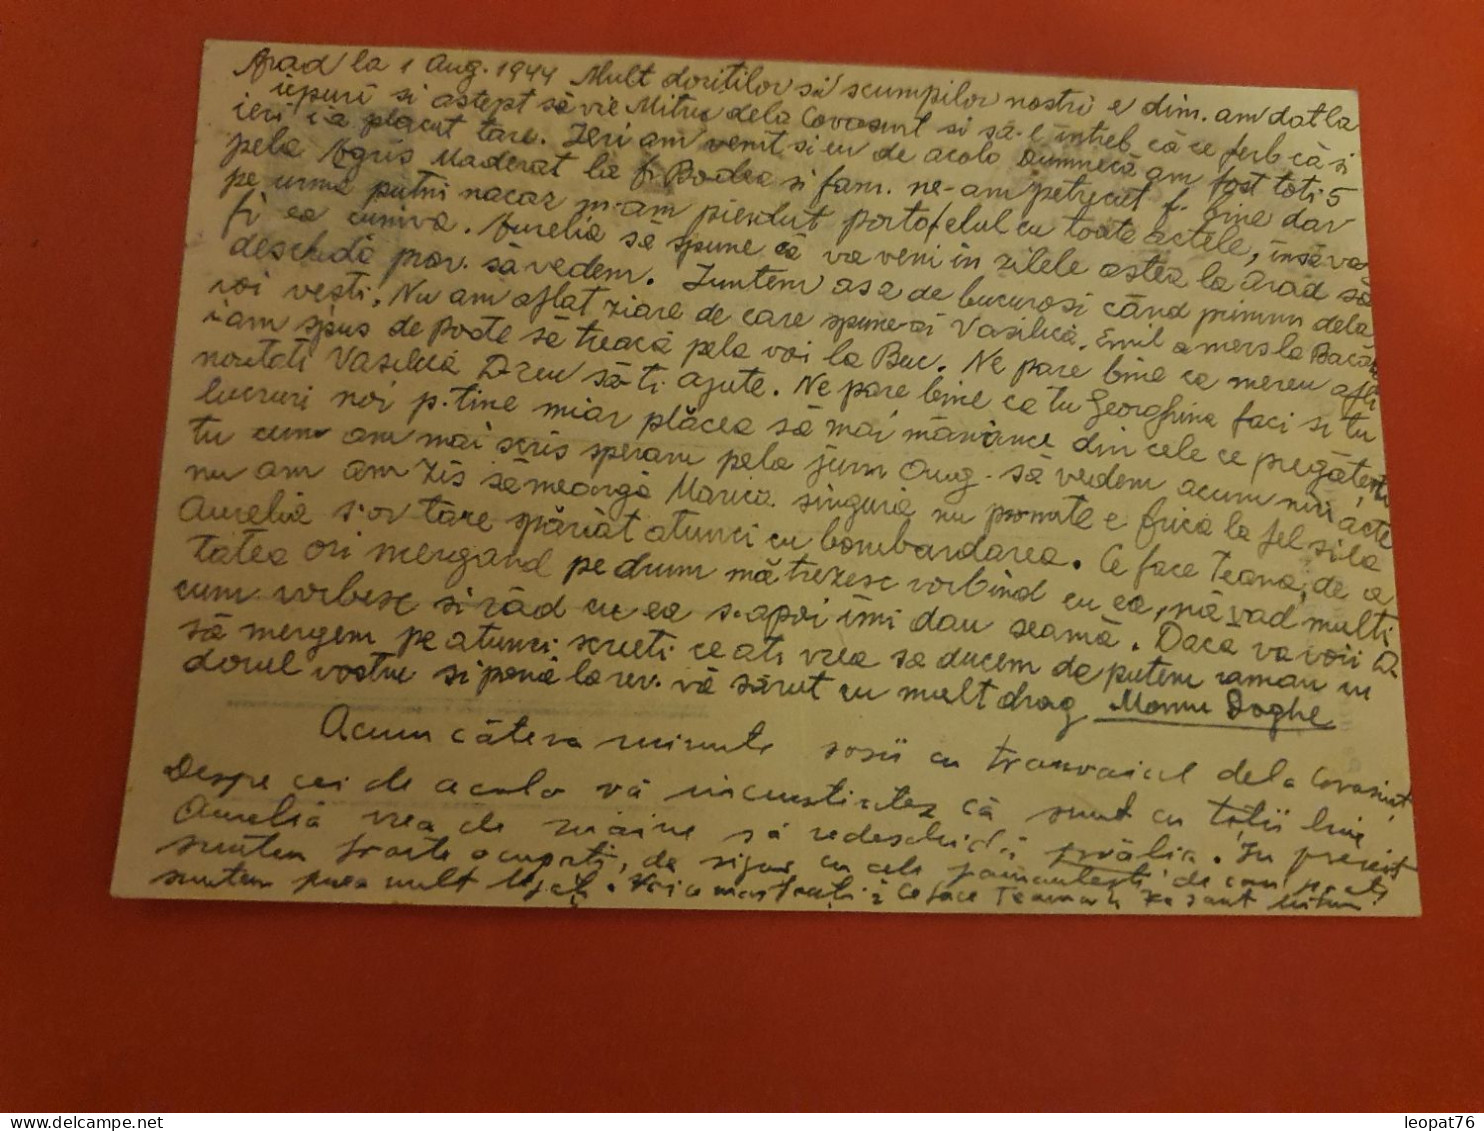 Arad la 1 Aug. 1944 Mult doritilor si scumpilor nostri e dim. am dat la
iepuri si astept să vie Mitru dela Covasint si să-l intreb că ce ferb că-si
ieri i-a placut tare. Ieri am venit si eu de acolo Dumnecă am fost toti 5
pela Agris Maderat la f. Bodea si fam. ne-am petrecut f. bine dar
pe urmă putni nacaz m-am pierdut portofelul cu toate actele, insă va
fi ea cumva. Aurelia să spune că va veni in zilele astea la Arad să
deschidă prav. să vedem. Suntem asa de bucurosi când primim dela
voi vesti. Nu am aflat ziare de care spune-ai Vasilică. Emil a mers la Bacău
i-am spus de poate să treacă pela voi la Buc. Ne pare bine ca mereu afli
noutati Vasilică D-zeu să-ti ajute. Ne pare bine ca tu Georghina faci si tu
lucruri noi p. tine mi-ar plăcea să mai mănânc din cele ce pregătesti
tu cum am mai scris speram pela jum Aug. să vedem acum nici acte
nu am am zis să meargă Marica singură nu promite e frica la fel si la
Aurelia s-or tare spăriat atunci cu bombardarea. Ce face Teana, de a
tatea ori mergand pe drum mă trezesc vorbind cu ea, mă vad multi
cum vorbesc si răd cu ea s-apoi imi dau seamă. Daca va voii
să mergem pe atunci scrieti ce ati vrea sa ducem de putem raman cu
dorul vostru si pană la rev. vă sărut cu mult drag Mamu Doghe
Acum câteva minute sosii cu tranvaiul dela Covasint
Despre cei de acolo vă incunostintez că sunt cu totii bine
Aurelia vrea de mâine să redeschidă prvălia. In prezent
suntem foarte ocupati, de sigur cu cele pamantesti de cari poate
suntem prea mult legati. ce face Teana
leopat76